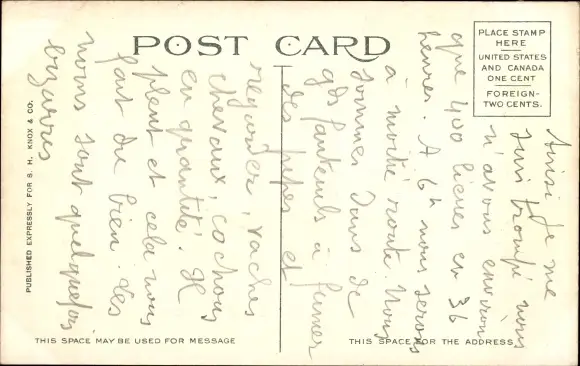 POST CARD
PLACE STAMP
HERE
UNITED STATES
AND CANADA
ONE CENT
FOREIGN-
TWO CENTS.
PUBLISHED EXPRESSLY FOR S. H. KNOX & CO.
THIS SPACE MAY BE USED FOR MESSAGE
THIS SPACE FOR THE ADDRESS
Ainsi je me
suis trompé nous
n'avons environ
que 400 lieues en 36
heures. A 6h nous serons
à moitié route. Nous
sommes dans de
gds fauteuils à fumer
des pipes et
regarder, vaches
chevaux, cochons
en quantité. Il
pleut et cela nous
fait du bien. Les
noms sont quelquefois
bizarres